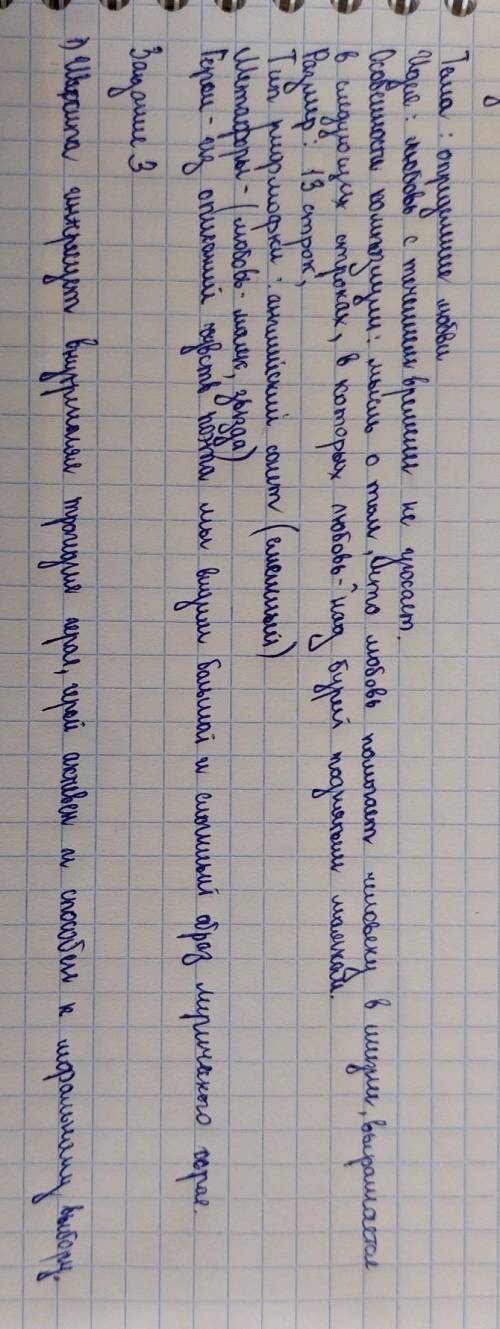 Тема: определение любви
Идея: любовь с течением времени не угасает.
Особенности композиции: мысль о том, что любовь помогает человеку в жизни, выражается
в следующих строках, в которых любовь - "над бурей поднятым маяком.
Размер: 13 строк,
Тип рифмофки: английский сонет (сменный)
Метафоры - (любовь - маяк, звезда)
Герои - из описаний чувств поэта мы видим большой и сложный образ лирического героя.
Задание 3
1) Шекспира интересует внутренняя трагедия героя, герой активен и способен к моральному выбору.